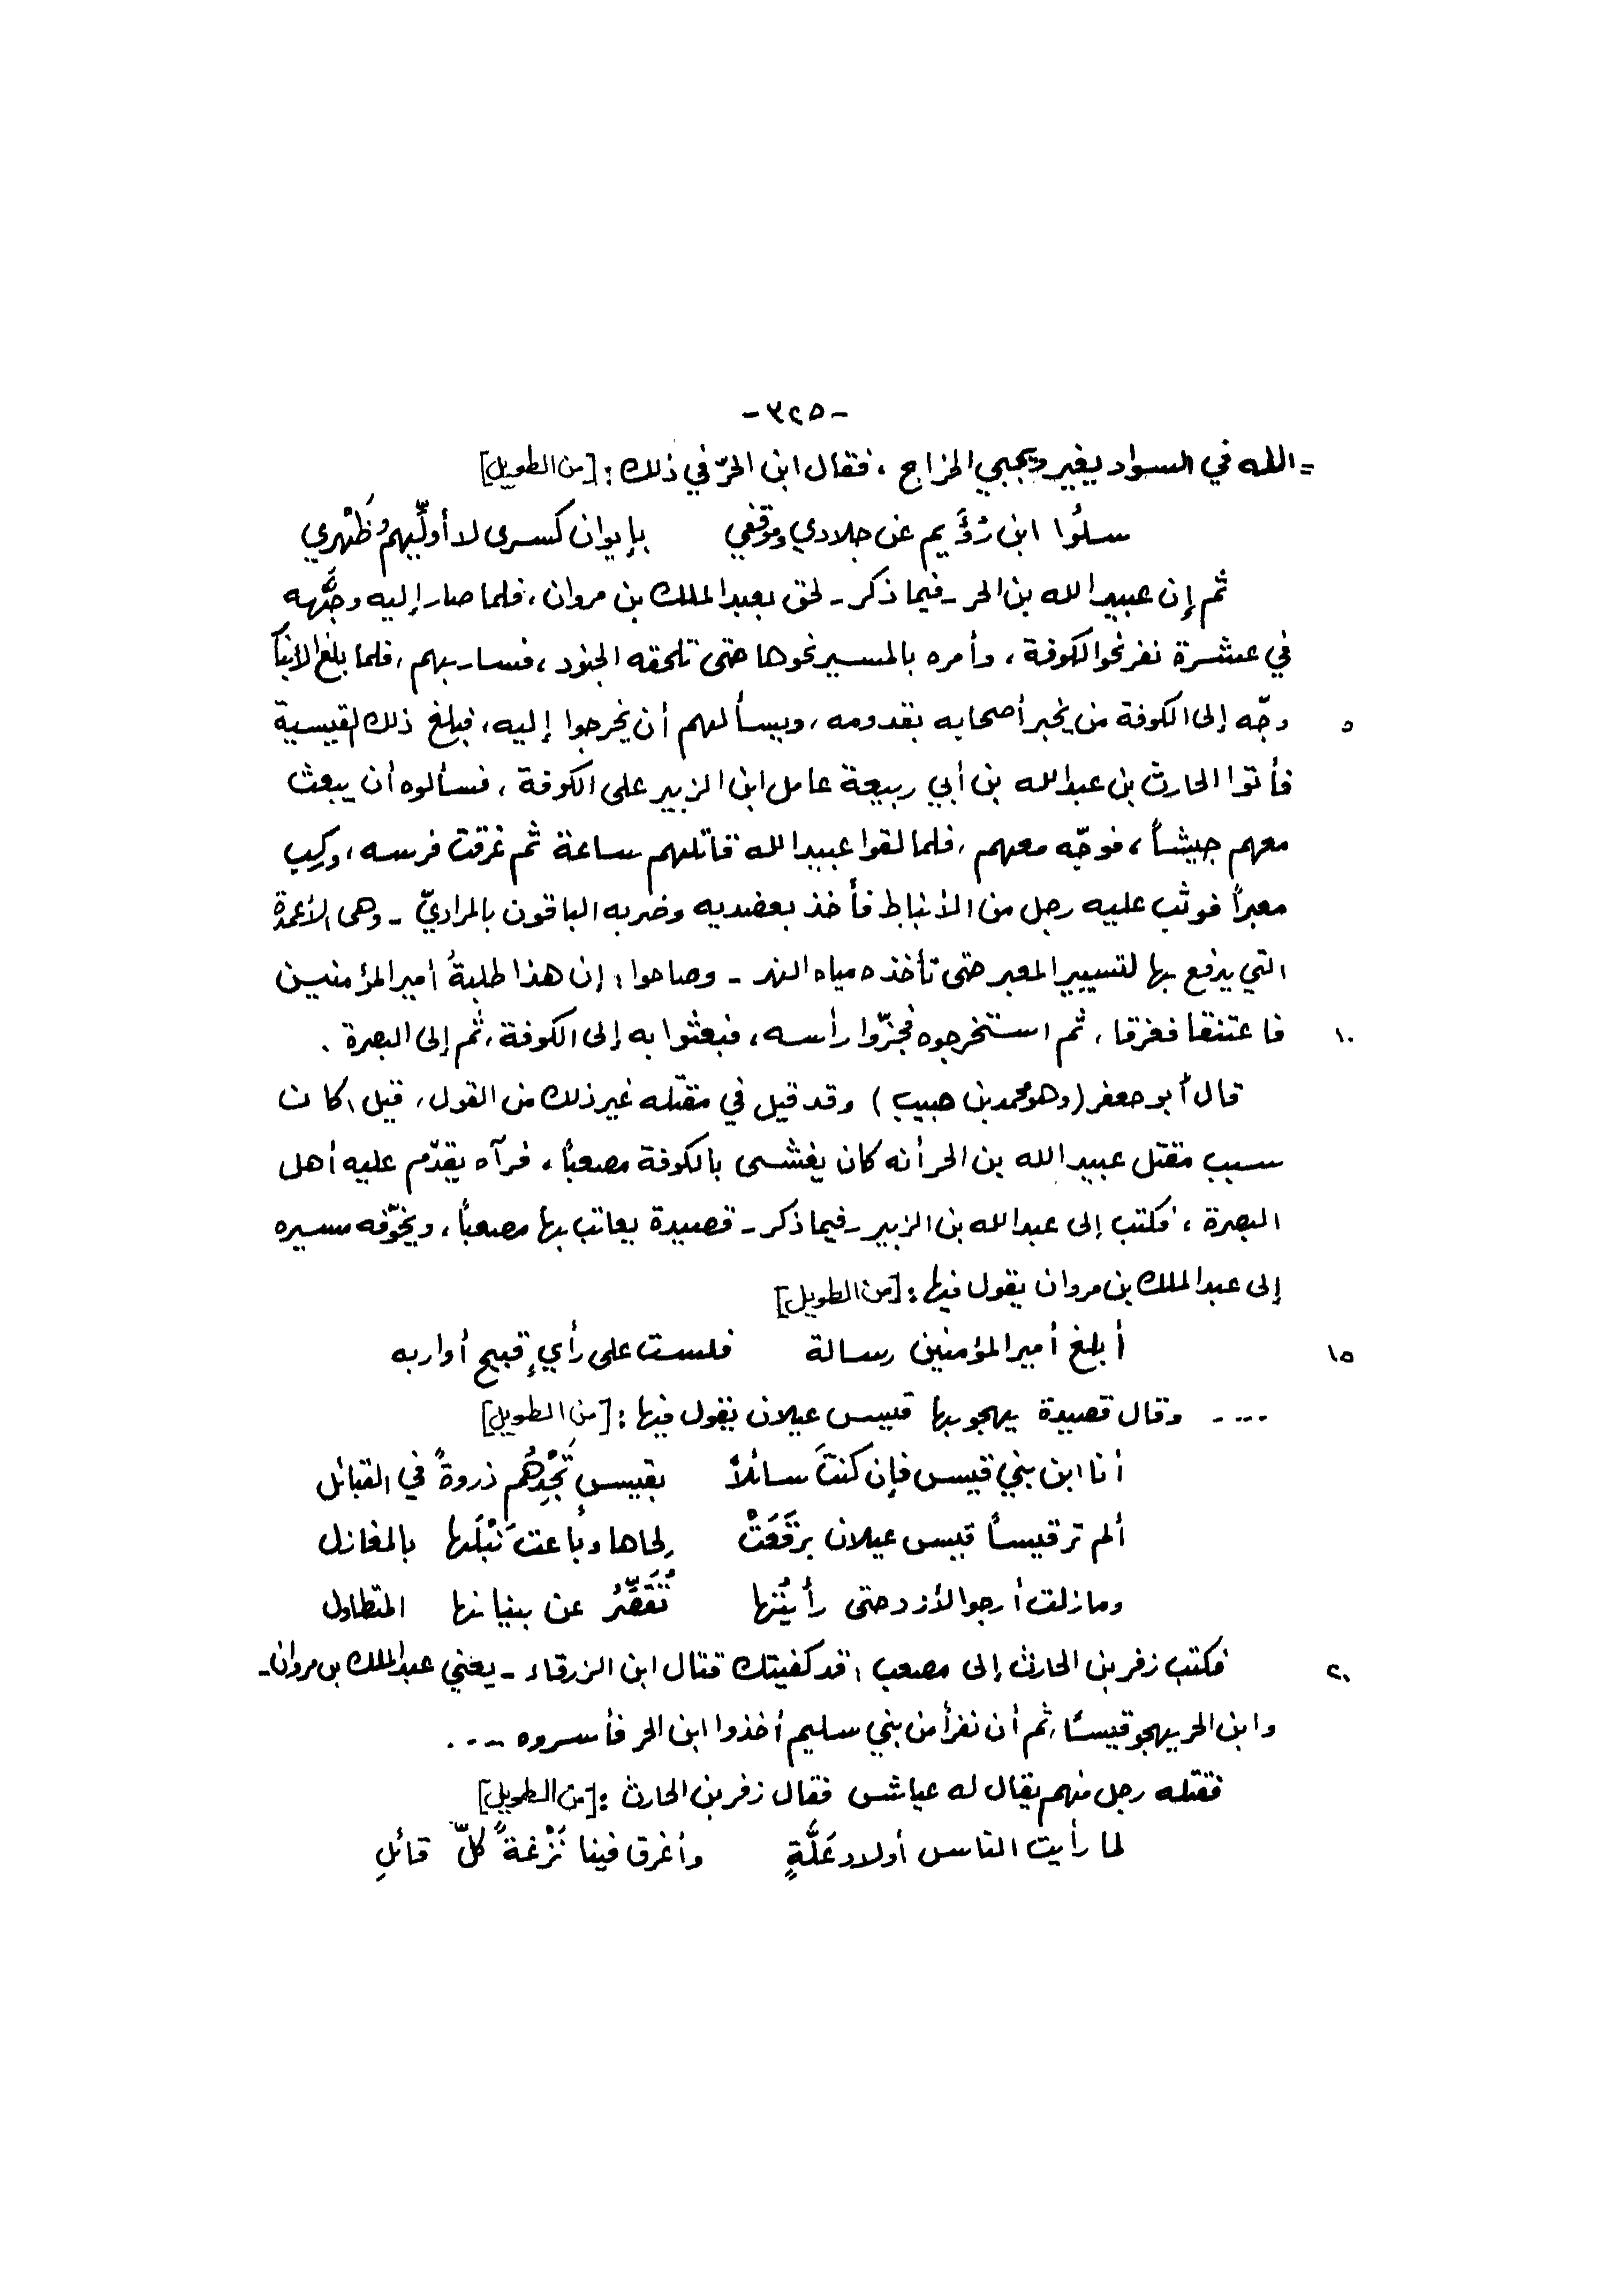 -٣٢٥-
= الله في السواد يغير ويجبي الخراج ، فقال ابن الحرّ في ذلك : [من الطويل]
سلُوا ابن رُؤَيم عن جلادي وموقفي بإيوان كسرى لا أولِّيهم ظَهْري
ثم إن عبيد الله بن الحر - فيما ذكر - لحق بعبد الملك بن مروان ، فلما صار إليه وجَّهه
في عشرة نفر نحو الكوفة ، وأمره بالمسير نحوها حتى تلحقه الجنود ، فسار بهم ، فلما بلغ الأنبار
٥ وجّه إلى الكوفة من يخبر أصحابه بقدومه ، ويسألهم أن يخرجوا إليه ، فبلغ ذلك القيسية
فأتوا الحارث بن عبدالله بن أبي ربيعة عامل ابن الزبير على الكوفة ، فسألوه أن يبعث
معهم جيشاً ، فوجّه معهم ، فلما لقوا عبيد الله قاتلهم ساعة ثم غرقت فرسه ، وركب
معبراً فوثب عليه رجل من الأنباط فأخذ بعضديه وضربه الباقون بالمراديّ - وهي الأعمدة
التي يدفع بها لتسيير المعبر حتى تأخذه مياه النهر - وصاحوا : إن هذا طلبةُ أمير المؤمنين
١٠ فاعتنقا فغرقا ، ثم استخرجوه فجزّوا رأسه ، فبعثوا به إلى الكوفة ، ثم إلى البصرة .
قال أبو جعفر (وهو محمد بن حبيب) وقد قيل في مقتله غير ذلك من القول ، قيل : كان
سبب مقتل عبيد الله بن الحر أنه كان يغشى بالكوفة مصعباً ، فرآه يقدّم عليه أهل
البصرة ، فكتب إلى عبدالله بن الزبير - فيما ذكر - قصيدة يعاتب بها مصعباً ، ويخوّفه مسيره
إلى عبد الملك بن مروان يقول فيها : [من الطويل]
١٥ أبلغ أمير المؤمنين رسالة فلست على رأيٍ قبيح أواربه
.... وقال قصيدة يهجو بها قيس عيلان يقول فيها : [من الطويل]
أنا ابن بني قيس فإن كنتَ سائلاً بقيسٍ تَجِدْهُم ذروةً في القبائل
ألم تر قيساً قيس عيلان برقَعَتْ لحاها وباعت نَبْلَها بالمغازل
وما زلت أرجو الأزد حتى رأيتُها تُقَصِّرُ عن بنيانها المتطاول
٢٠ فكتب زفر بن الحارث إلى مصعب : قد كفيتك قتال ابن الزرقاء - يعني عبد الملك بن مروان -
وابن الحر يهجو قيساً ، ثم أن نفراً من بني سليم أخذوا ابن الحر فأسروه ....
فقتله رجل منهم يقال له عياش فقال زفر بن الحارث : [من الطويل]
لما رأيت الناس أولاد عَلَّةٍ وأغرق فينا نَزْغةً كلّ قائلِ